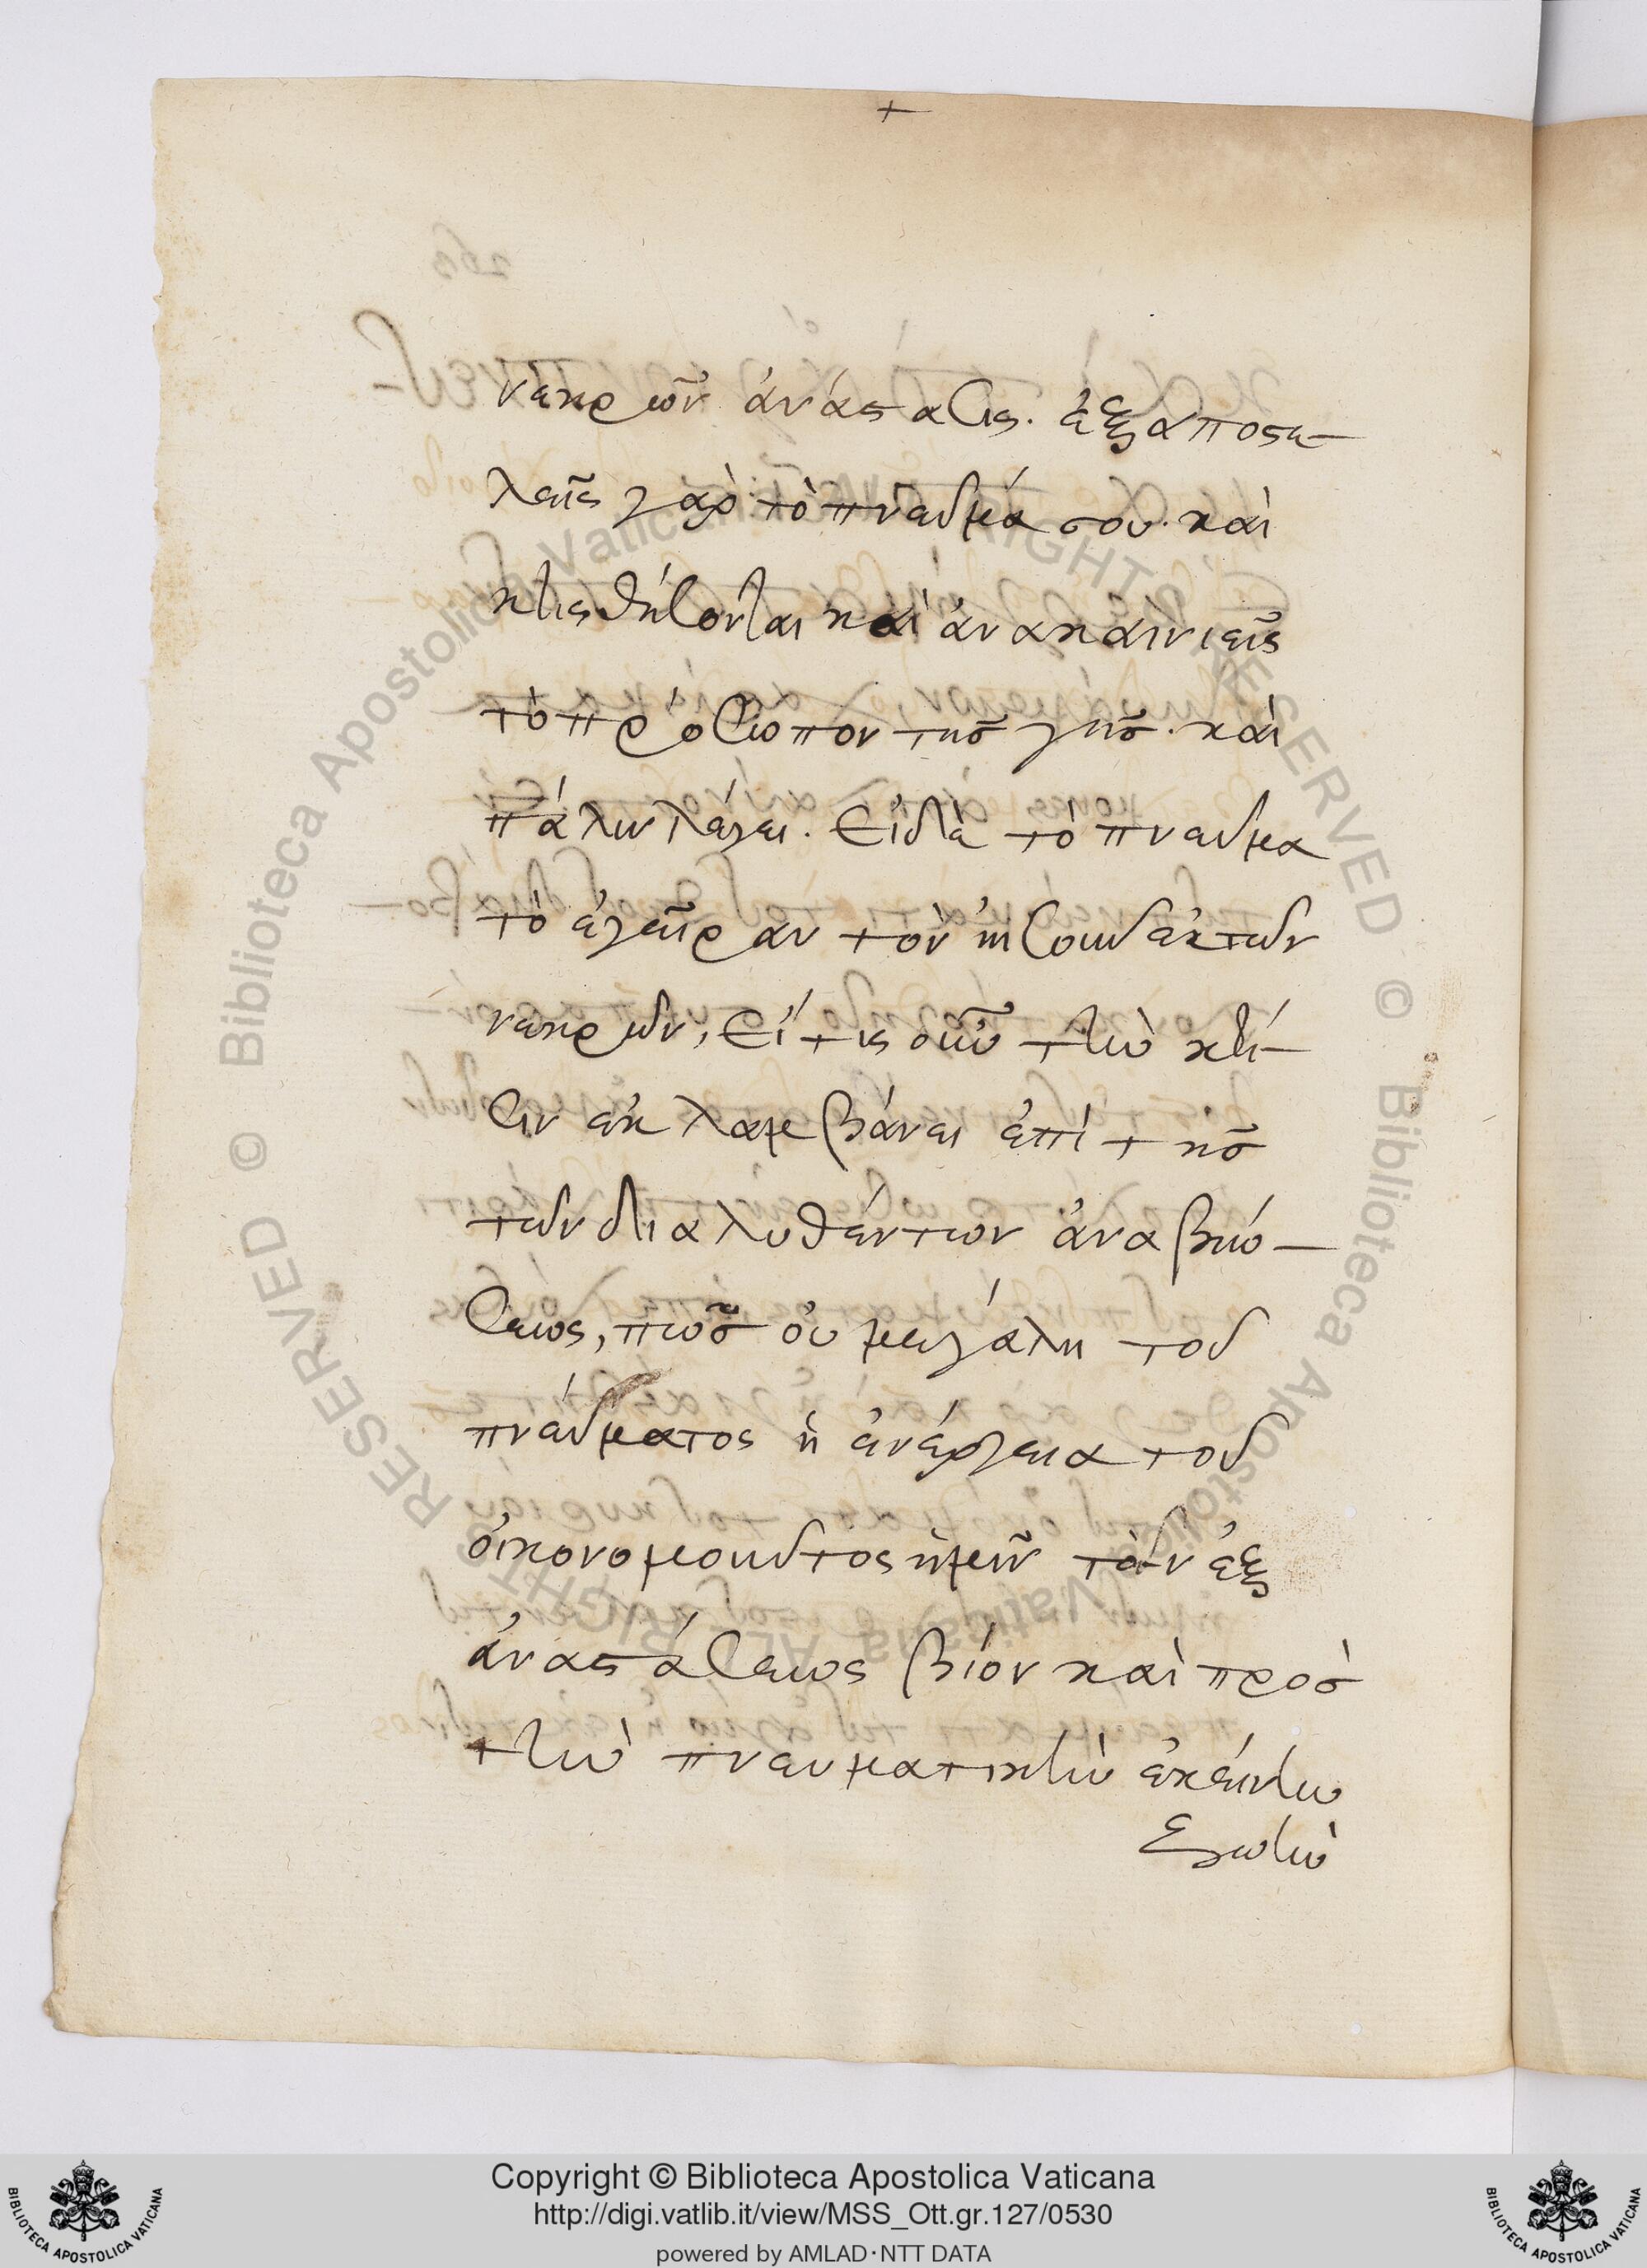 +
νεκρῶν ἀνάστασις. ἐξαποστε-
λεῖς γὰρ τὸ πνεῦμά σου· καὶ
κτισθήσονται καὶ ἀνακαινιεῖς
τὸ πρόσωπον τῆς γῆς. καὶ
πάλιν λέγει. Εἰ δὲ τὸ πνεῦμα
τὸ ἐγεῖραν τὸν ἰησοῦν ἐκ τῶν
νεκρῶν, Εἴ τις οὖν τὴν κτί-
σιν ἐκλαμβάνει ἐπὶ τῆς
τῶν διαλυθέντων ἀναβιώ-
σεως, πῶς οὐ μεγάλη τοῦ
πνεύματος ἡ ἐνέργεια τοῦ
οἰκονομοῦντος ἡμῖν τὸν ἐξ
ἀναστάσεως βίον καὶ πρὸς
τὴν πνευματικὴν ἐκείνην
ζωὴν
© Biblioteca Apostolica Vaticana ALL RIGHTS RESERVED
Copyright © Biblioteca Apostolica Vaticana
http://digi.vatlib.it/view/MSS_Ott.gr.127/0530
powered by AMLAD·NTT DATA
BIBLIOTECA APOSTOLICA VATICANA
BIBLIOTECA APOSTOLICA VATICANA